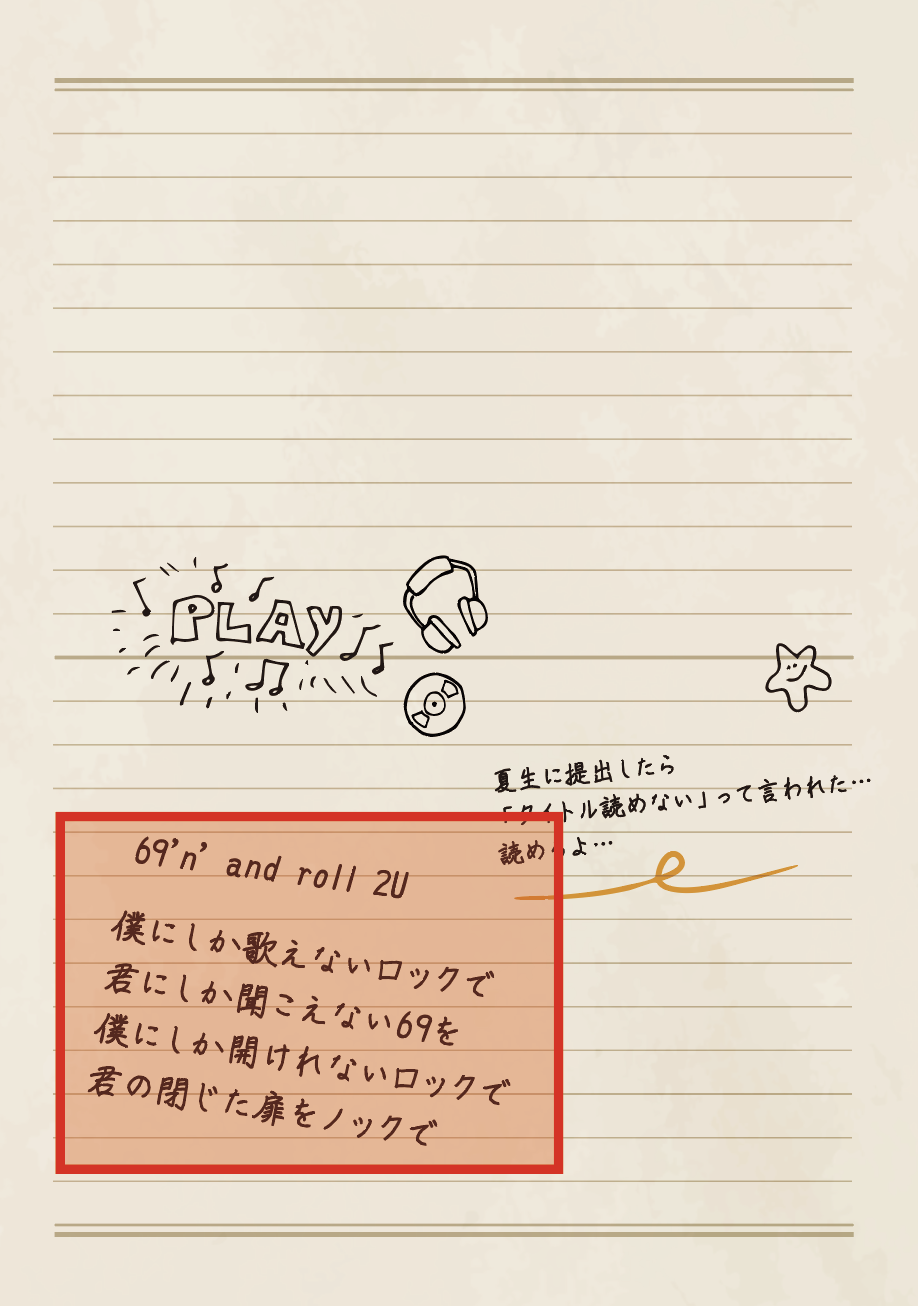 PLAY
夏生に提出したら
「タイトル読めない」って言われた…
読めるよ…
69'n' and roll 2U
僕にしか歌えないロックで
君にしか聞こえない69を
僕にしか開けれないロックで
君の閉じた扉をノックで